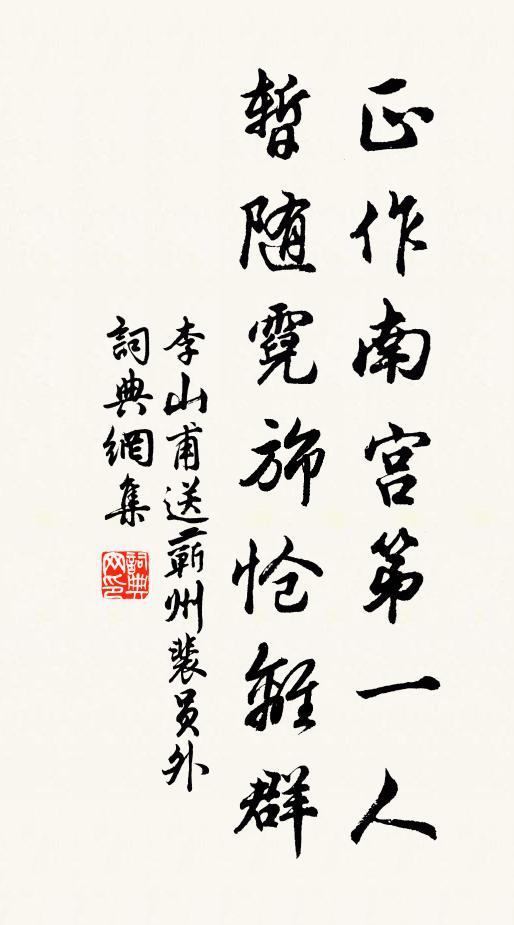 正作南宫第一人
暂随霓旆怆离群
李山甫送蕲州裴员外
詞典網集
詞典網印